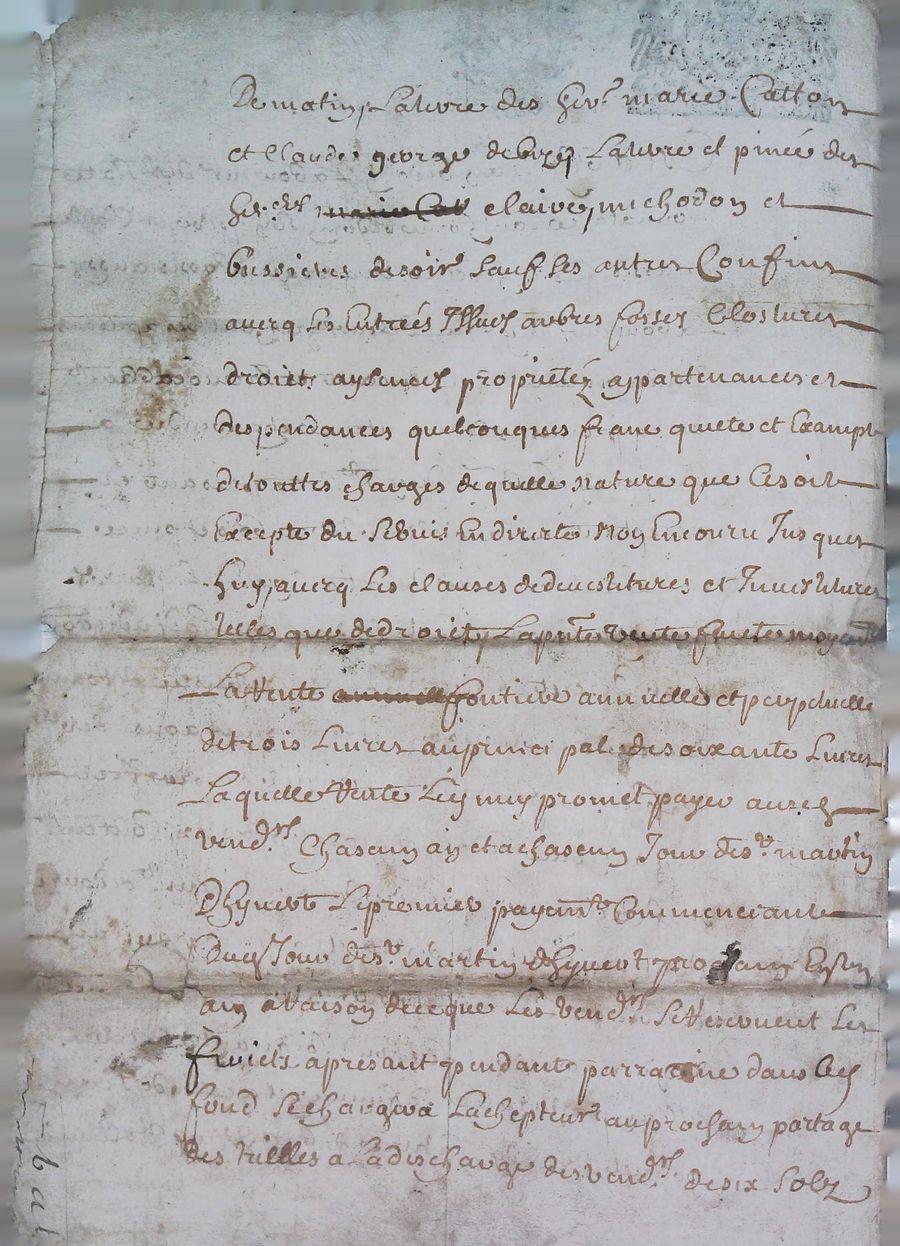 De matin, La terre des her.^s marie Catton
et Claude george de bize La terre et pinee des
her.^rs marie Cat claire, michodon et
bussieres de soir Sauf Ses autres Confins
avecq Les Entrées Issues arbres fosses Clostures
droicts aysences proprietéz appartenances et
despendances quelconques franc quitte et Exampt
de touttes charges de quelle nature que Ce soit
Excepte du Servis En directe Non Encouru Jusques
huy, avecq Les clauses de devestitures et Investitures
telles que de droict, La pnte vente faicte moyent
La Rente annuelle fontiere annuelle et perpetuelle
de trois Livres au princi pal de soixante Livres
Laquelle Rente Led muy promet payer ausd
vend.^rs Chascun an et a chascun Jour de S.^t martin
Dhyvert Le premier payem.^t Commenceant
Du Jour de S.^t martin dhyvert prochain En un
an a Raison de ce que Les vend.^rs Se Reservent Les
fruicts apresant pendants par racine dans Led
fond Se chargera Lachepteur au prochain partage
des tailles a La discharge des vend.^rs de six Solz